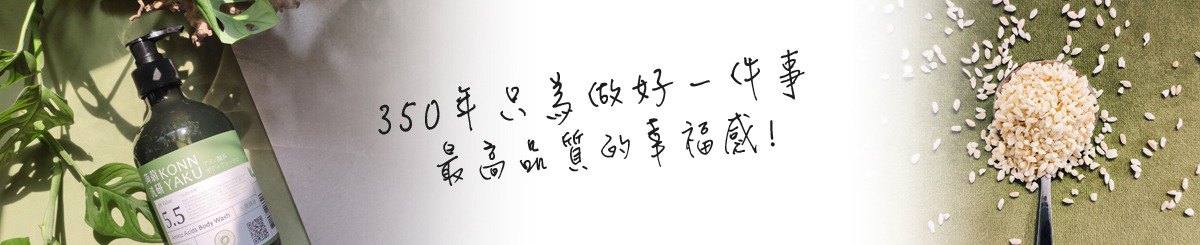 350年只為做好一件事
最高品質的幸福感！
KONN
YAKU
5.5
Amino Acids Body Wash